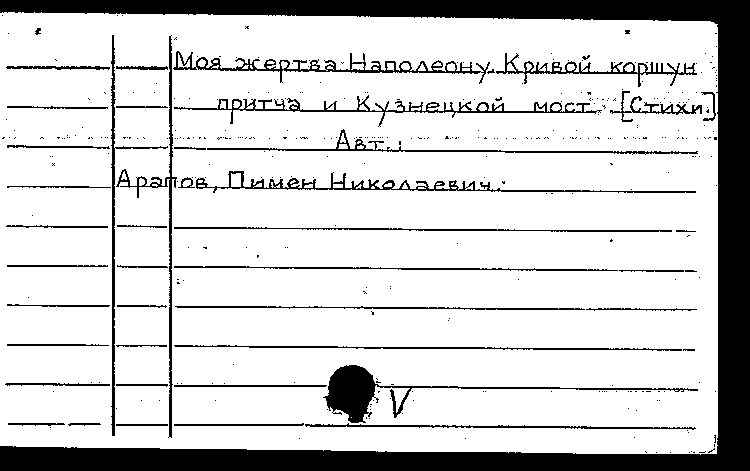 Моя жертва Наполеону. Кривой коршун
притча и Кузнецкой мост. [Стихи.]
Авт.:
Арапов, Пимен Николаевич.
V